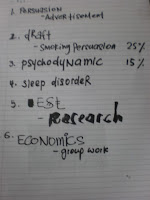 1. PERSUASION
- Advertisement
2. dRaft
- Smoking Persuasion 25%
3. psychodynamic 15%
4. sleep disordeR
5. EST
- Research
6. ECONOMICS
- group work